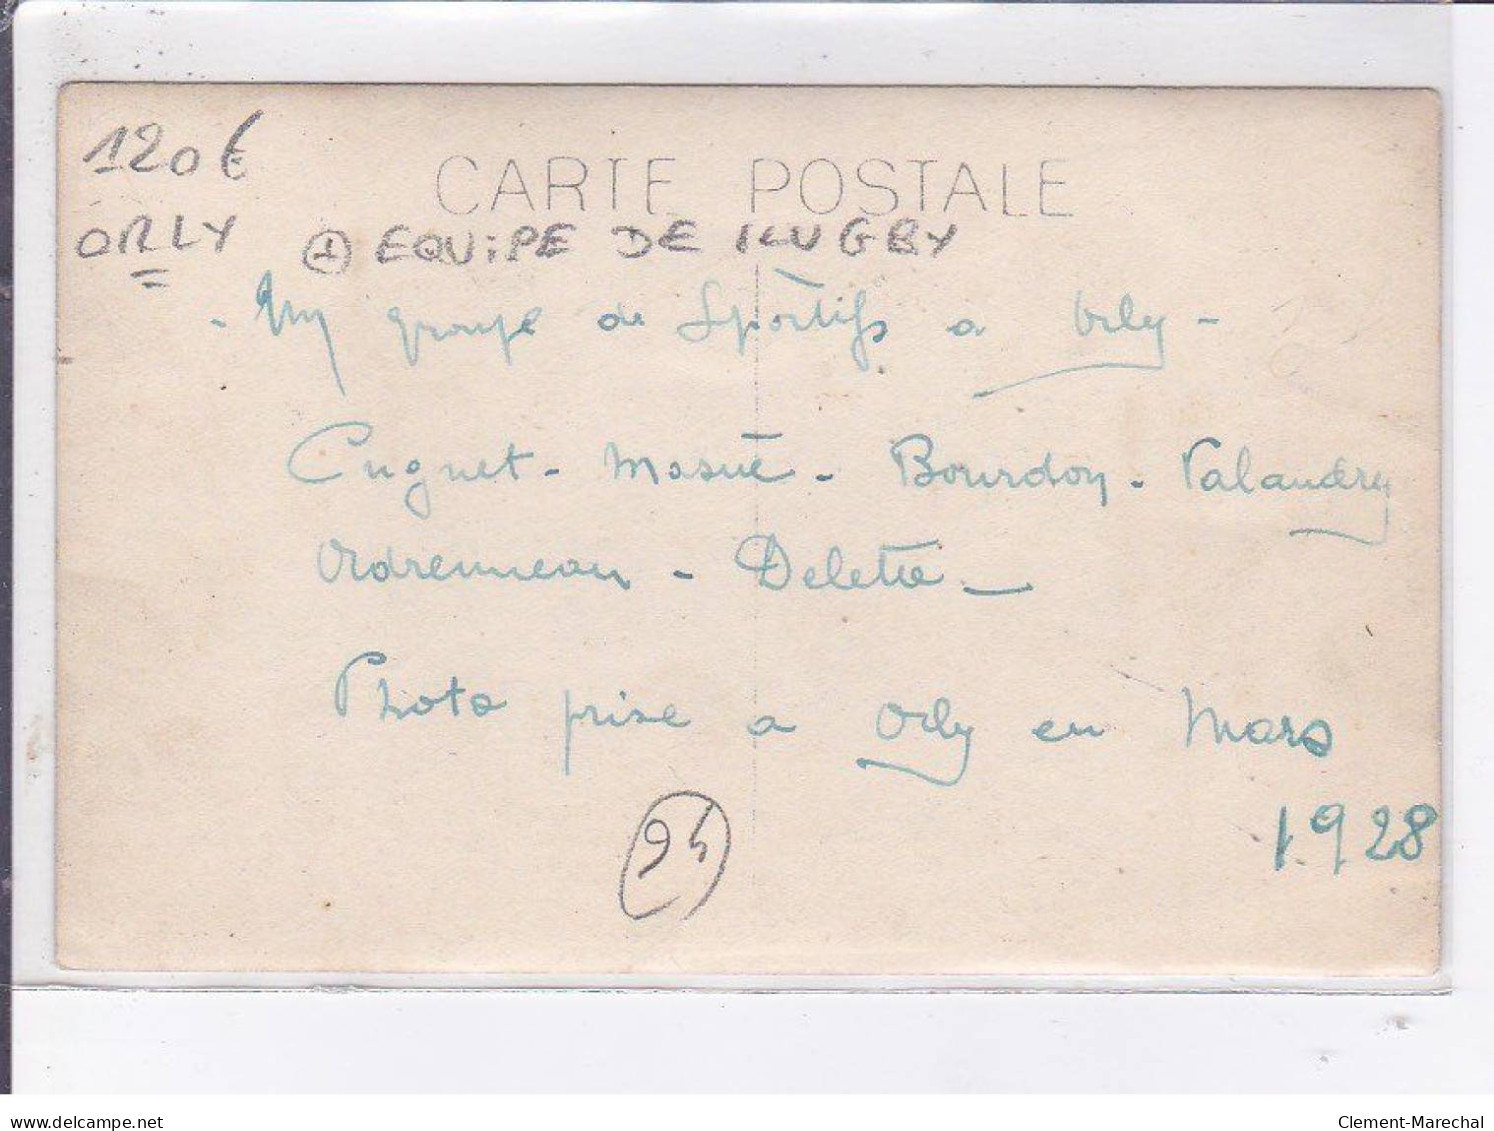 120 €
CARTE POSTALE
ORLY ① EQUIPE DE RUGBY
- Un groupe de Sportifs a Orly -
Cugnet - Masué - Bourdon - Valandry
Ordrenneau - Deletré -
Photo prise a Orly en Mars
1928
94
www.delcampe.net
Clement-Marechal